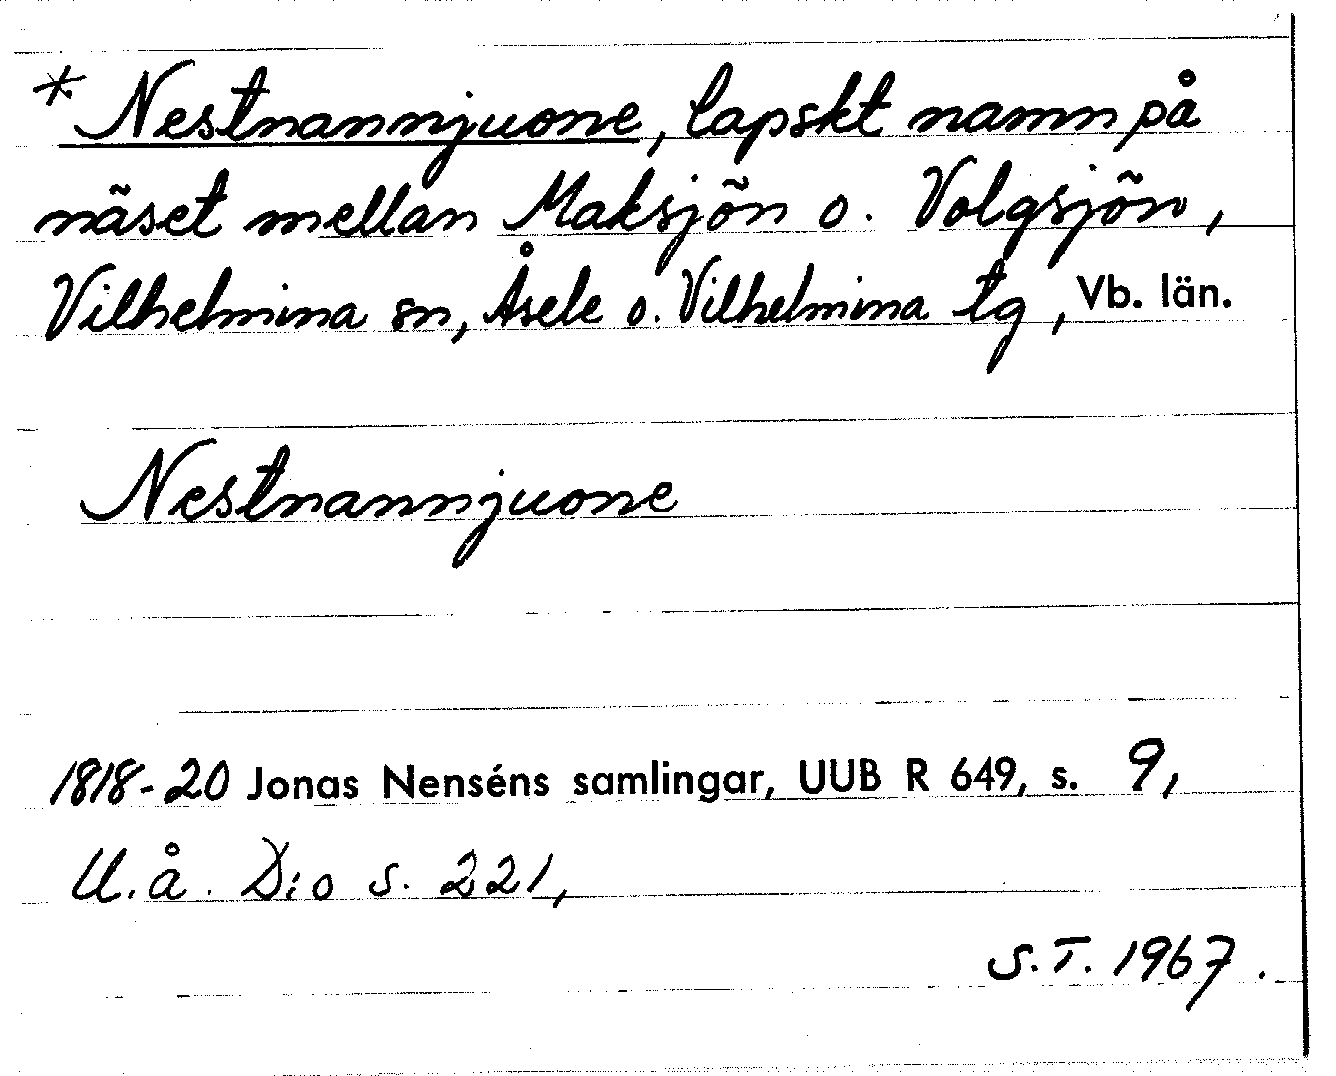 * Nestnannjuone, lapskt namn på
näset mellan Maksjön o. Volgsjön,
Vilhelmina sn, Åsele o. Vilhelmina tg, Vb. län.
Nestnannjuone
1818-20 Jonas Nenséns samlingar, UUB R 649, s. 9,
U.å. D:o s. 221,
S.T. 1967.